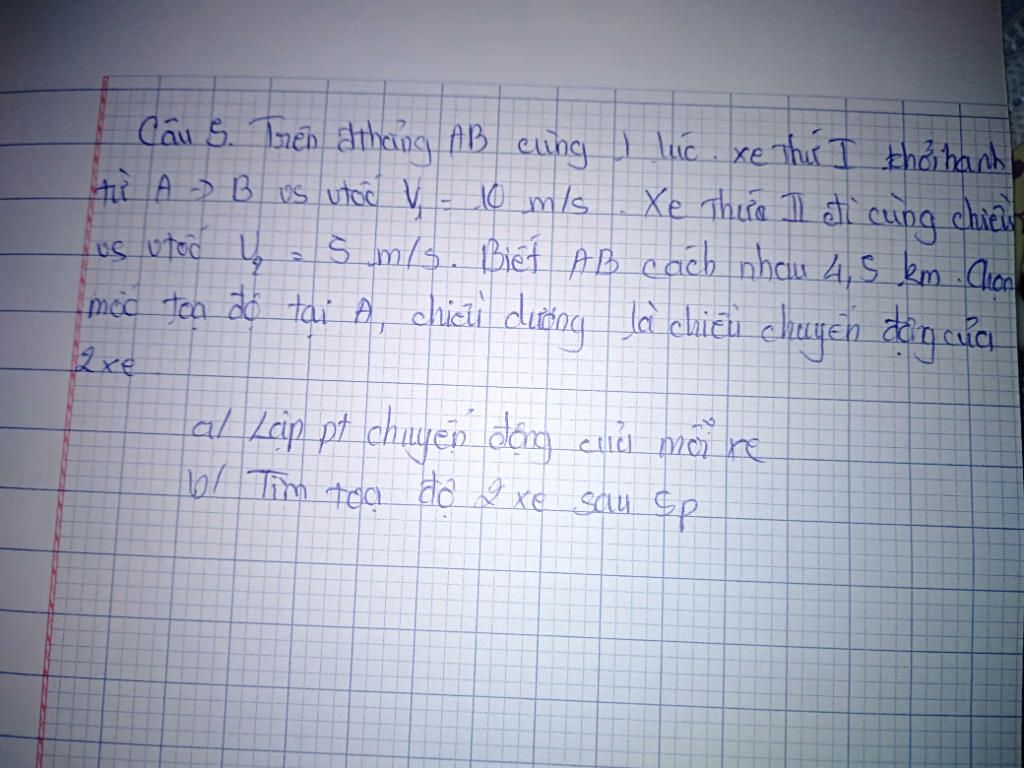 Câu 5. Trên đthẳng AB cùng 1 lúc. xe thứ I khởi hành
từ A → B vs vtốc V₁ = 10 m/s. Xe thứ II đi cùng chiều
vs vtốc V₂ = 5 m/s. Biết AB cách nhau 4,5 km. Chọn
mốc tọa độ tại A, chiều dương là chiều chuyển động của
2 xe
a/ Lập pt chuyển động của mỗi xe
b/ Tìm tọa độ 2 xe sau 5p